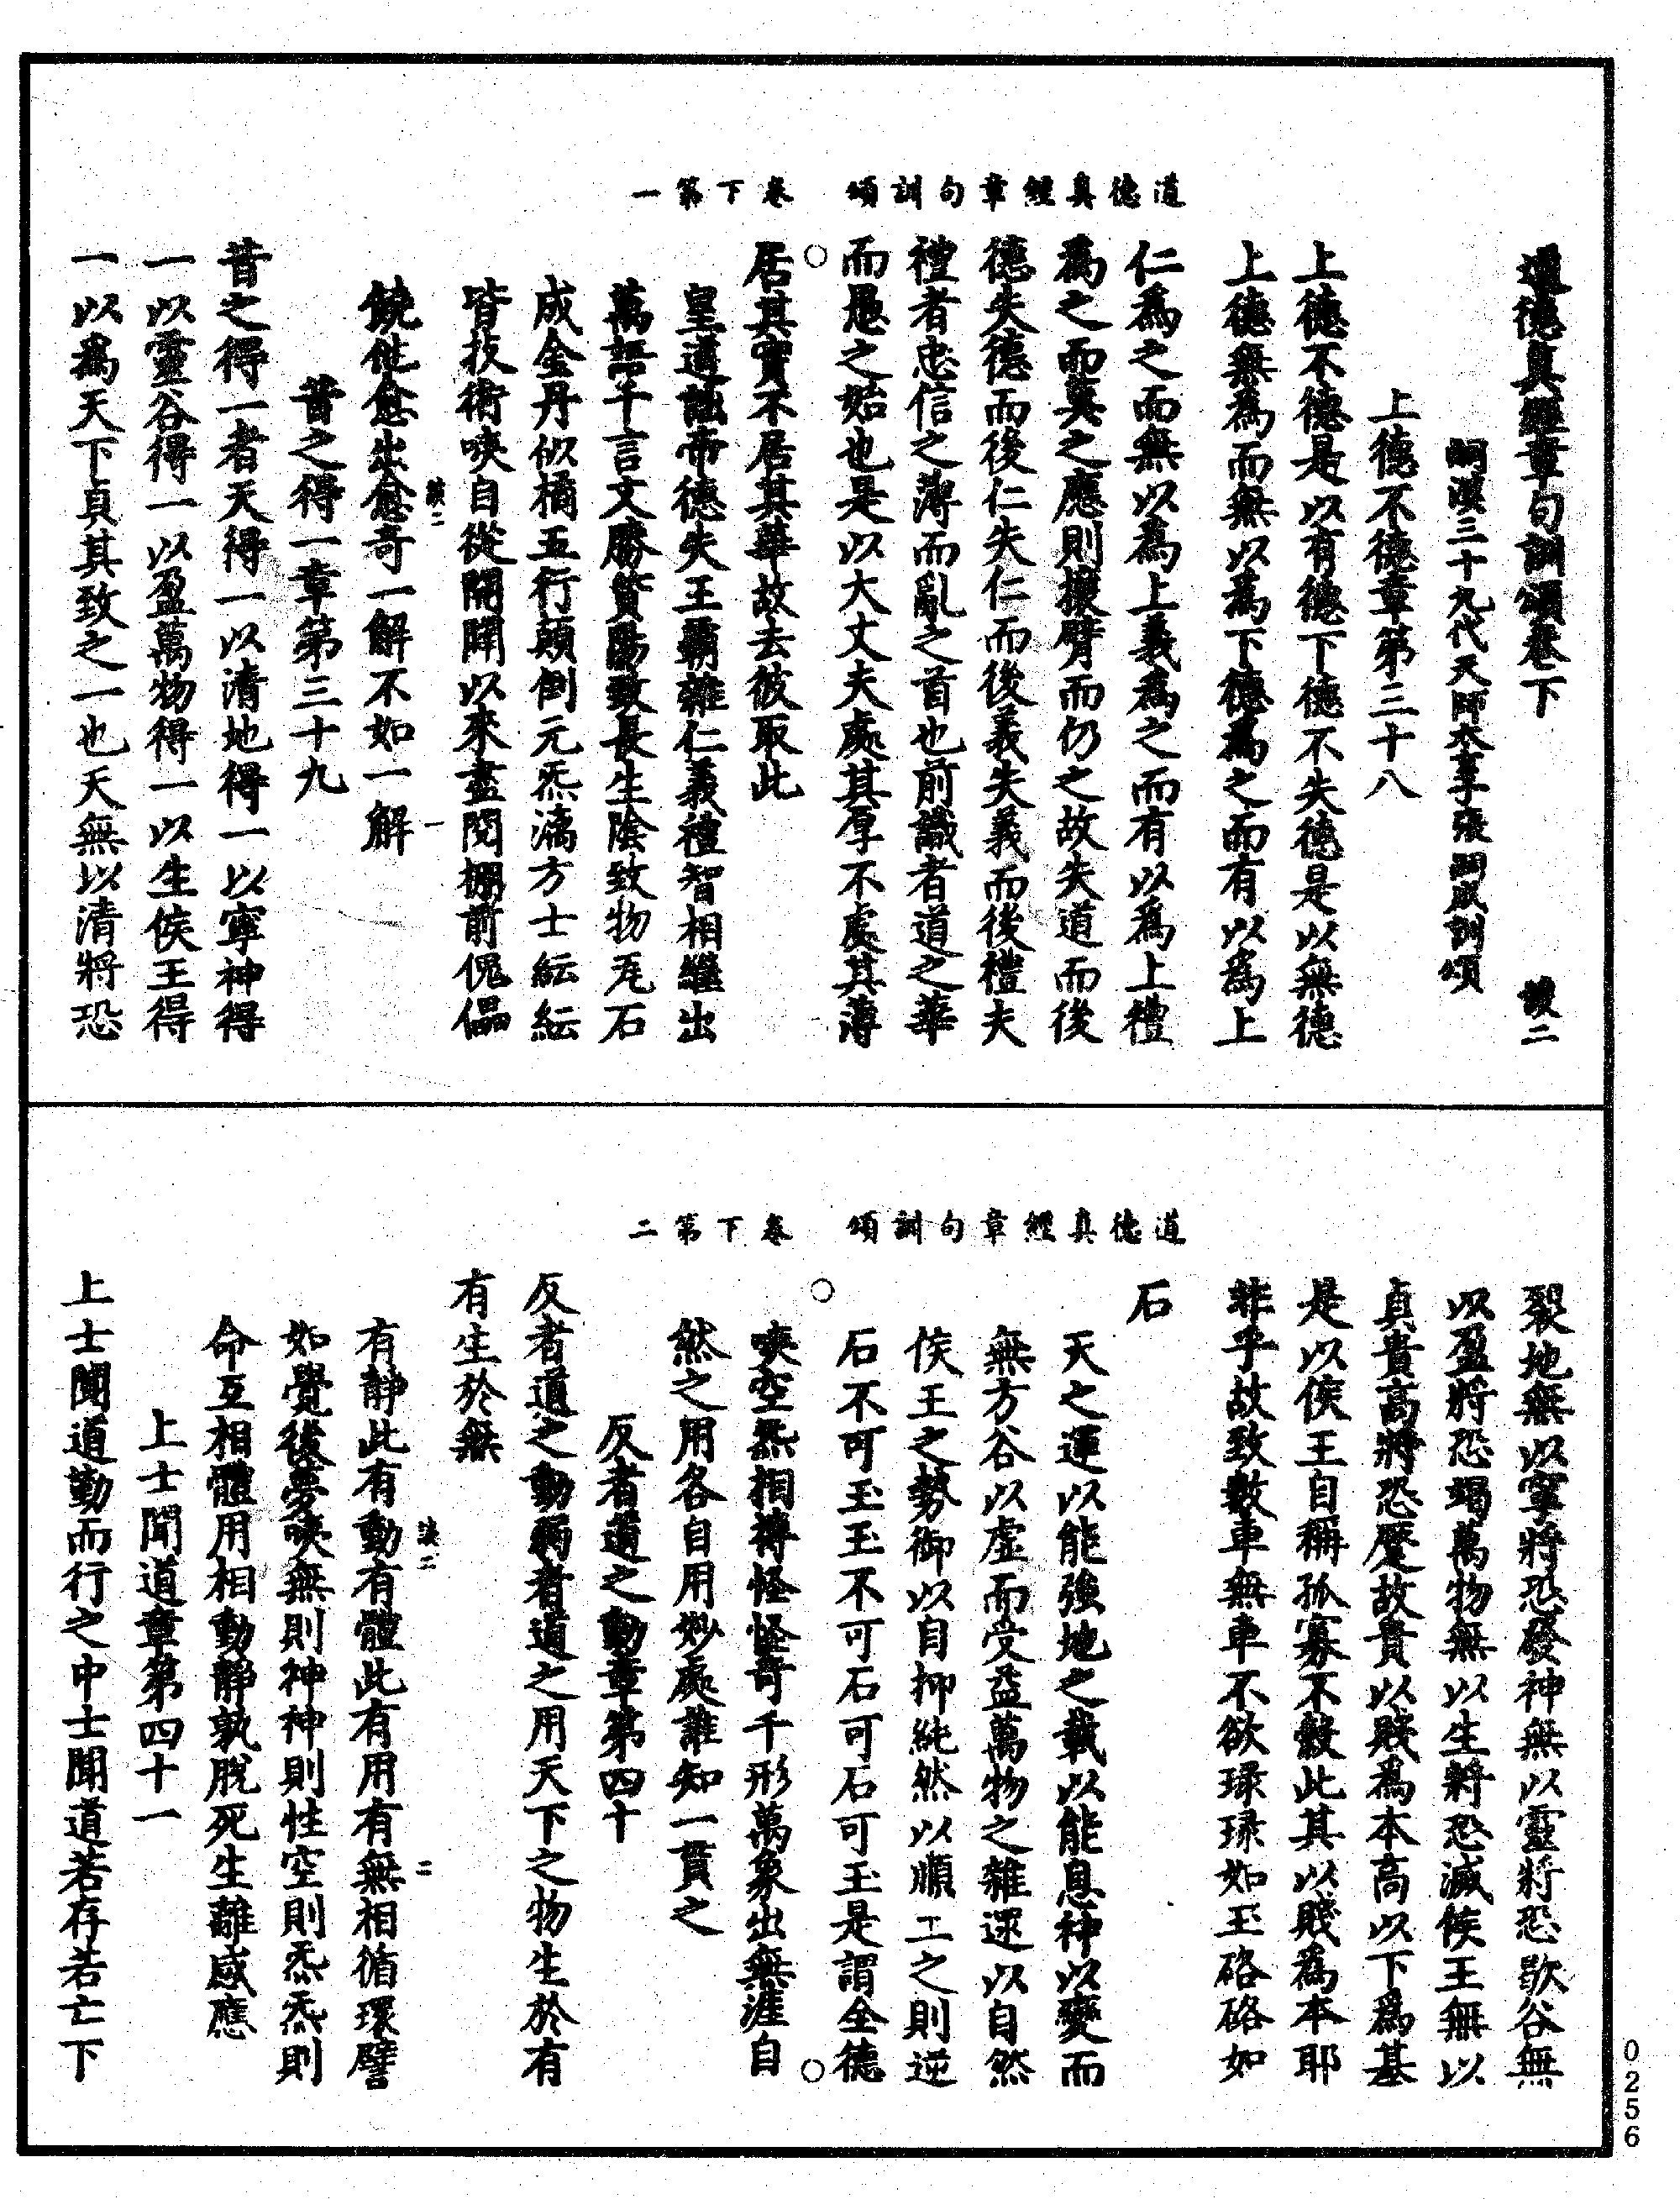 道德真經章句訓頌　卷下第一
道德真經章句訓頌卷下　談二
嗣漢三十九代天師太玄子張嗣成訓頌
上德不德章第三十八
上德不德是以有德下德不失德是以無德
上德無為而無以為下德為之而有以為上
仁為之而無以為上義為之而有以為上禮
為之而莫之應則攘臂而仍之故失道而後
德失德而後仁失仁而後義失義而後禮夫
禮者忠信之薄而亂之首也前識者道之華
而愚之始也是以大丈夫處其厚不處其薄
居其實不居其華故去彼取此
皇道詘帝德失王霸雜仁義禮智相繼出
萬語千言文勝質陽致長生陰致物瓦石
成金丹似橘五行顛倒元炁漓方士紜紜
皆技術咲自從開闢以來盡閱棚前傀儡
饒他愈出愈奇一解不如一解
談二　一
昔之得一章第三十九
昔之得一者天得一以清地得一以寧神得
一以靈谷得一以盈萬物得一以生侯王得
一以為天下貞其致之一也天無以清將恐
道德真經章句訓頌　卷下第二
裂地無以寧將恐發神無以靈將恐歇谷無
以盈將恐竭萬物無以生將恐滅侯王無以
貞貴高將恐蹷故貴以賤為本高以下為基
是以侯王自稱孤寡不穀此其以賤為本耶
非乎故致數車無車不欲琭琭如玉硌硌如
石
天之運以能強地之載以能息神以變而
無方谷以虛而受益萬物之雜還以自然
侯王之勢御以自抑純然以順工之則逆
石不可玉玉不可石可石可玉是謂全德
咲空炁相摶怪怪奇千形萬象出無涯自
然之用各自用妙處誰知一貫之
反者道之動章第四十
反者道之動弱者道之用天下之物生於有
有生於無
談二　二
有靜此有動有體此有用有無相循環譬
如覺後夢咲無則神神則性空則炁炁則
命互相體用相動靜孰脫死生離感應
上士聞道章第四十一
上士聞道勤而行之中士聞道若存若亡下
0256